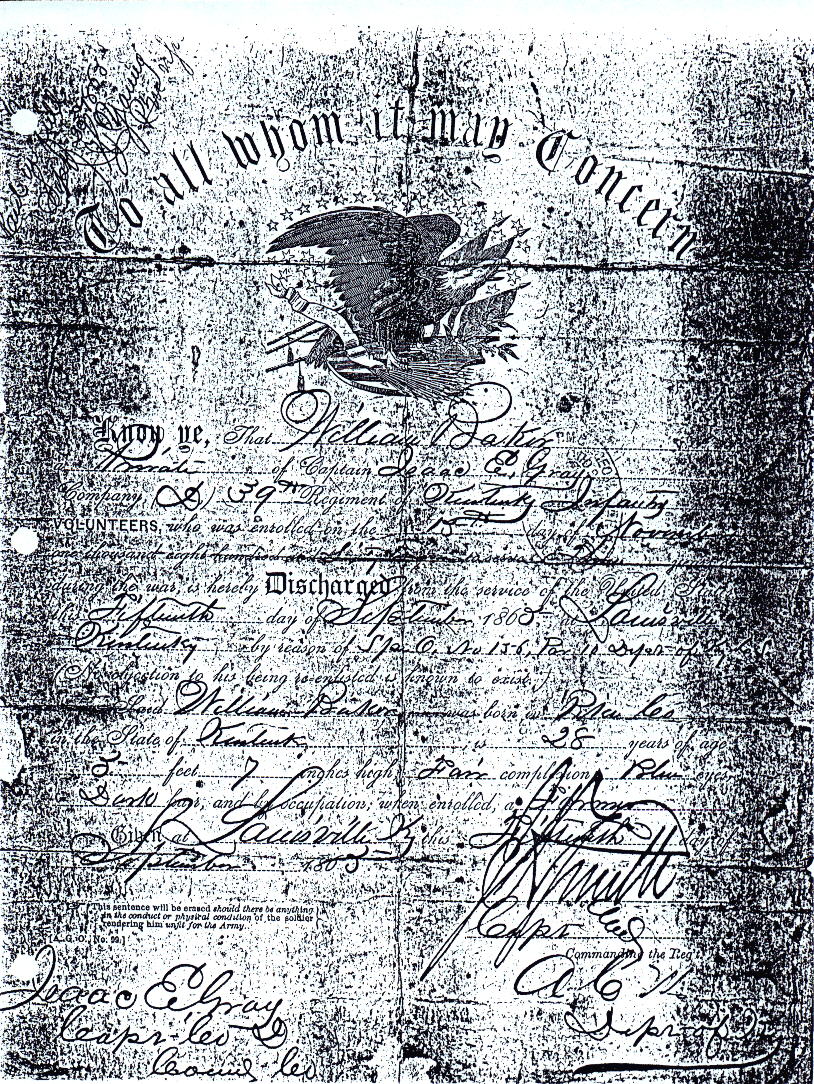 To all whom it may Concern
Know ye, That William Barker a
Private of Captain Isaac E. Gray
Company (D) 39th Regiment of Kentucky Infantry
VOLUNTEERS, who was enrolled on the 15th day of November
one thousand eight hundred and
during the war, is hereby Discharged from the service of the United States
this Fifteenth day of September 1865 at Louisville
Kentucky by reason of Sp. O. No 156, Par 10 Dept of Ky
(No objection to his being re-enlisted is known to exist.)
Said William Barker was born in
in the State of Kentucky is 28 years of age
5 feet 7 inches high Fair complexion, Blue eyes
Dark hair, and by occupation, when enrolled, a Farmer
Given at Louisville Ky this Fifteenth day of
September 1865
This sentence will be erased should there be anything
in the conduct or physical condition of the soldier
rendering him unfit for the Army.
[A. G. O., No. 99.]
Capt
Commanding the Reg't
Isaac E Gray
Capt Co D
Comdg Co
A C M
Dept of Ky